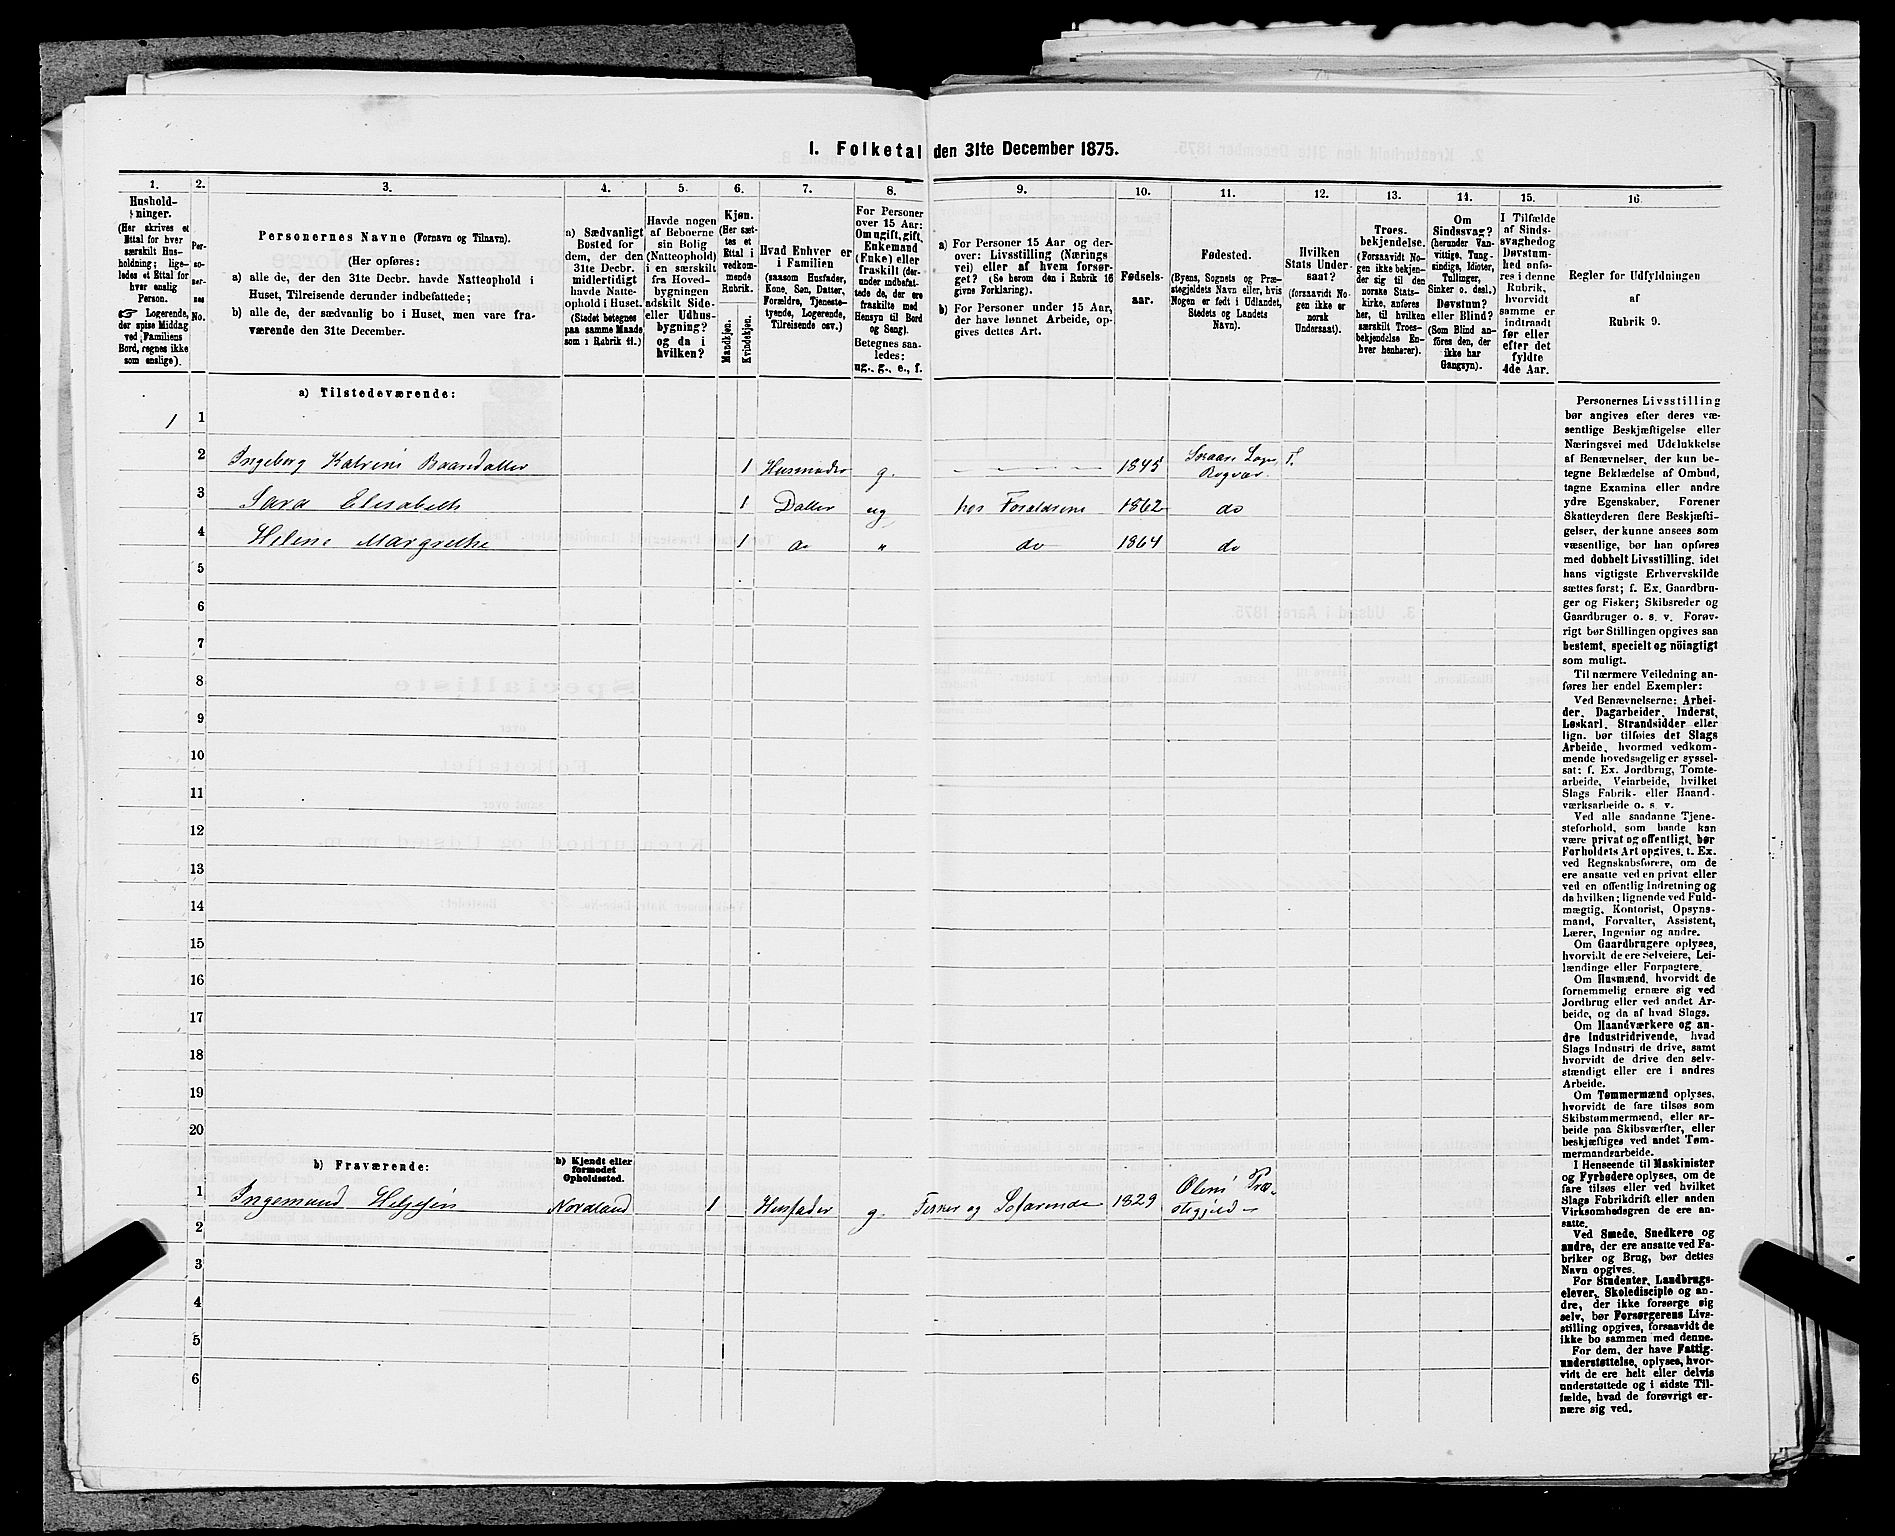 I. Folketal den 31te December 1875.
1.
Hushold-
ninger.
(Her skrives et
Ettal for hver
særskilt Hus-
holdning; lige-
ledes et Ettal for
hver enslig
Person.
☞ Logerende,
der spise Middag
ved Familiens
Bord, regnes ikke
som enslige).
2.
Per-
so-
ner-
nes
No.
3.
Personernes Navne (Fornavn og Tilnavn).
(Her opføres:
a) alle de, der den 31te Decbr. havde Natteophold i
Huset, Tilreisende derunder indbefattede;
b) alle de, der sædvanlig bo i Huset, men vare fra-
værende den 31te December.
4.
a) Sædvanligt
Bosted for
dem, der den
31te Decbr.
midlertidigt
havde Natte-
ophold i Huset.
(Stedet betegnes
paa samme Maade
som i Rubrik 11.)
5.
Havde nogen
af Beboerne
sin Bolig
(Natteophold)
i en særskilt
fra Hoved-
bygningen
adskilt Side-
eller Udhus-
bygning?
og da i
hvilken?
6.
Kjøn.
(Her sæt-
tes et
Ettal i
vedkom-
mende
Rubrik.
Mandkjøn.
Kvindekjøn.
7.
Hvad Enhver er
i Familien
(saasom Husfader,
Kone, Søn, Datter,
Forældre, Tjeneste-
tyende, Logerende,
Tilreisende osv.)
8.
For Personer
over 15 Aar:
Om ugift, gift,
Enkemand
(Enke) eller
fraskilt (der-
under indbefat-
tede de, der ere
fraskilte med
Hensyn til Bord
og Seng).
Betegnes saa-
ledes:
ug., g., e., f.
9.
a) For Personer 15 Aar og der-
over: Livsstilling (Nærings
vei) eller af hvem forsør-
get? (Se herom den i Rubrik 16
givne Forklaring).
b) For Personer under 15 Aar,
der have lønnet Arbeide, op-
gives dettes Art.
10.
Fødsels-
aar.
11.
Fødested.
(Byens, Sognets og Præ-
stegjeldets Navn eller, hvis
Nogen er født i Udlandet,
Stedets og Landets
Navn).
12.
Hvilken
Stats Under-
saat?
(forsaavidt No
gen ikke er
norsk
Undersaat).
13.
Troes-
bekjendelse.
(Forsaavidt No-
gen ikke bekjen-
der sig til den
norske Stats-
kirke, anføres
her, til hvilken
særskilt Troes-
bekjendelse En-
hver henhører).
14.
Om
Sindssvag?
(herunder Van-
vittige, Tung-
sindige, Idioter,
Tullinger,
Sinker o. desl.)
Døvstum?
eller Blind?
(Som Blind an-
føres den, der
ikke har
Gangsyn).
15.
I Tilfælde
af Sinds-
svaghed og
Døvstum-
hed anfø-
res i denne
Rubrik,
hvorvidt
samme er
indtraadt
før eller
efter det
fyldte
4de Aar.
16
Regler for Udfyldningen
af
Rubrik 9.
a) Tilstedeværende:
1 1
2 Ingeborg Katrine Baardatter 1 Husmoder g. 1845
3 Sara Elisabeth 1 Datter ug hos Forældrene 1862 do
4 Helene Margrethe 1 do " do 1864 do
5
6
7
8
9
10
11
12
13
14
15
16
17
18
19
20
b) Fraværende:
b) Kjendt eller
formodet
Opholdssted.
1 Ingemund Helgesen Nordland 1 Husfader g. Fisker og Søfarende 1829 Ølens Præ-
stegjeld
2
3
4
5
6
Personernes Livsstilling
bør angives efter deres væ-
sentlige Beskjæftigelse eller
Næringsvei med Udelukkelse
af Benævnelser, der kun be-
tegne Beklædelse af Ombud,
tagne Examina eller andre
ydre Egenskaber. Forener
Skatteyderen flere Beskjæfti-
gelser, der kunne ansees som
væsentlige, bør han opføres
med dobbelt Livsstilling, idet
hans vigtigste Erhvervskilde
sættes først; f. Ex. Gaardbru-
ger og Fisker; Skibsreder og
Gaardbruger o. s. v. Forøv-
rigt bør Stillingen opgives saa
bestemt, specielt og nöiagtigt
som muligt.
Til nærmere Veiledning an-
føres her endel Exempler:
Ved Benævnelserne: Arbei-
der, Dagarbeider, Inderst,
Løskarl, Strandsidder eller
lign. bør tilføies det Slags
Arbeide, hvormed vedkom-
mende hovedsagelig er syssel-
sat: f. Ex. Jordbrug, Tomte-
arbeide, Veiarbeide, hvilket
Slags Fabrik- eller Haand-
værksarbeide o. s. v.
Ved alle saadanne Tjene-
steforhold, som baade kan
være privat og offentligt, bør
Forholdets Art opgives, t. Ex.
ved Regnskabsførere, om de
ere ansatte ved en privat eller
ved en offentlig Indretning og
da hvilken; lignende ved Fuld-
mægtig, Kontorist, Opsyns-
mand, Forvalter, Assistent,
Lærer, Ingeniør og andre.
Om Gaardbrugere oplyses,
hvorvidt de ere Selveiere, Lei-
lændinge eller Forpagtere.
Om Husmænd, hvorvidt de
fornemmelig ernære sig ved
Jordbrug eller ved andet Ar-
beide, og da af hvad Slags.
Om Haandværkere og an-
dre Industridrivende, hvad
Slags Industri de drive, samt
hvorvidt de drive den selv-
stændigt eller ere i andres
Arbeide.
Om Tømmermænd oplyses,
hvorvidt de fare tilsøs som
Skibstømmermænd, eller ar-
beide paa Skibsværfter, eller
beskjæftiges ved andet Tøm-
mermandsarbeide.
I Henseende til Maskinister
og Fyrbødere oplyses, om de
fare tilsøs eller ved hvilket
Slags Fabrikdrift eller anden
Virksomhedsgren de ere an-
satte.
Ved Smede, Snedkere og
andre, der ere ansatte ved Fa-
briker og Brug, bør dettes
Navn opgives.
For Studenter, Landbrugs-
elever, Skoledisciple og an-
dre, der ikke forsørge sig
selv, bør Forsørgerens Livs-
stilling opgives, forsaavidt de
ikke bo sammen med denne.
For dem, der have Fattig-
understøttelse, oplyses, hvor-
vidt de ere helt eller delvis
understøttede og i sidste Til-
fælde, hvad de forøvrigt er-
nære sig ved.